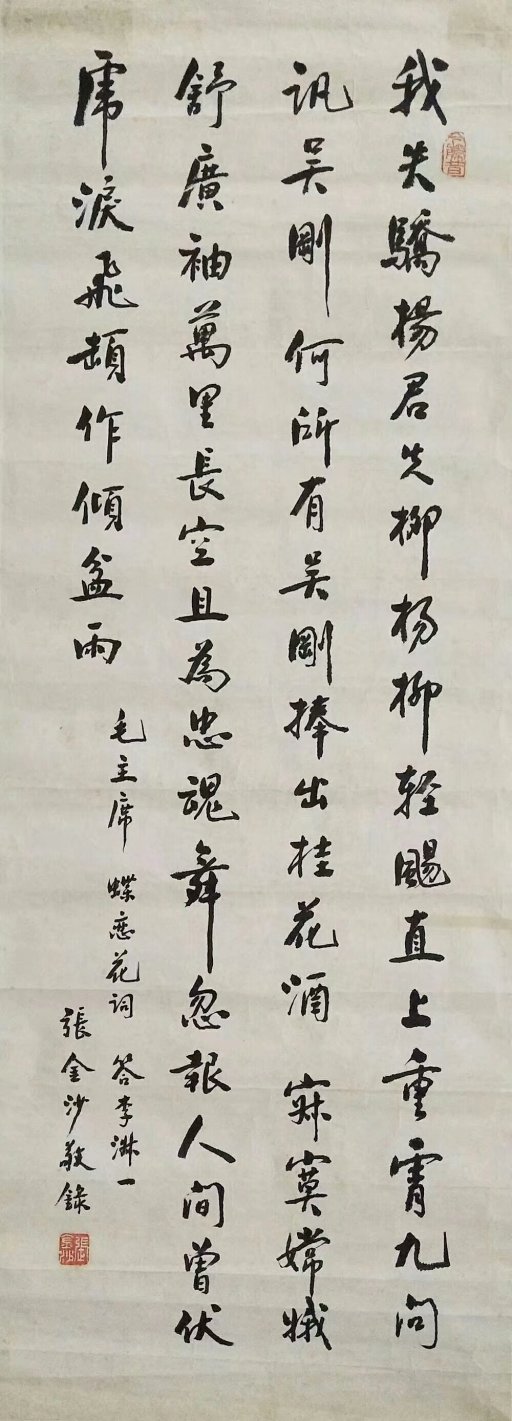 我失驕楊君失柳杨柳輕颺直上重霄九问
訊吴剛何所有吴剛捧出桂花酒 寂寞嫦娥
舒廣袖萬里長空且為忠魂舞忽報人间曾伏
虎淚飛頓作傾盆雨
毛主席 蝶恋花词 答李淑一
張金沙敬錄